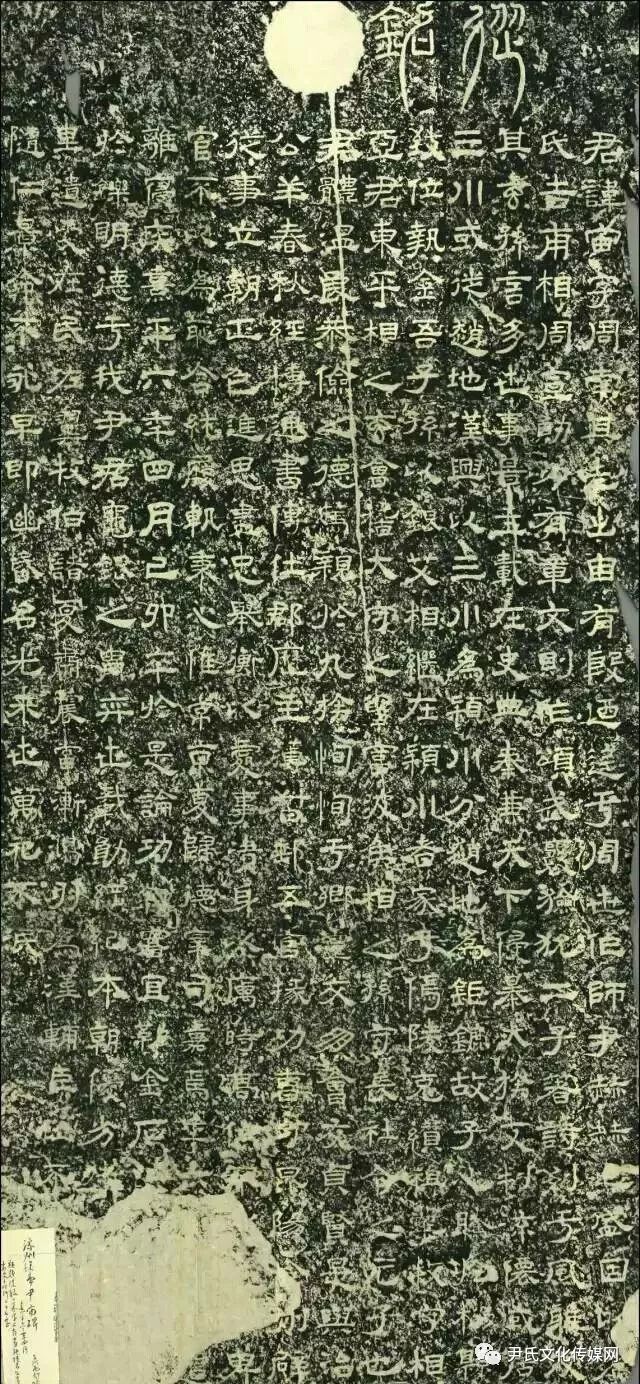 從銘
君諱宙字周南其先出自有殷迺迄于周世作師尹赫赫之盛因以為
氏吉甫相周宣勳力有章文則作頌武襄獫狁二子著詩列于風雅及
其玄孫言多世事景王載在史典秦兼天下侵暴大族支判流遷或居
三川或徙趙地漢興以三川為潁川分趙地為鉅鹿故子心騰於楊縣
致位執金吾子孫以銀艾相繼在潁川者家于傿陵克纘祖業牧守相
亞君東平相之玄會稽大守之曾富波侯相之孫守長社令之元子也
君體溫良恭儉之德篤親於九族恂恂于鄉黨交朋會友貞賢是與治
公羊春秋經博通書傳仕郡歷主簿督郵五官掾功曹守昆陽令州辟
從事立朝正色進思盡忠舉衡以處事清身以厲時高位卑
官不以為恥含純履軌秉心惟常京夏歸德宰司嘉焉年
離寢疾熹平六年四月己卯卒於是論功敘實宜勒金石
於鑠明德于我尹君龜銀之胄弈世載勳綱紀本朝優劣
里遺愛在民佐翼牧伯諸夏肅震當漸鴻羽為漢輔臣位不
隨仁景命不永早即幽昏名光來世萬祀不泯
尹氏文化传媒网